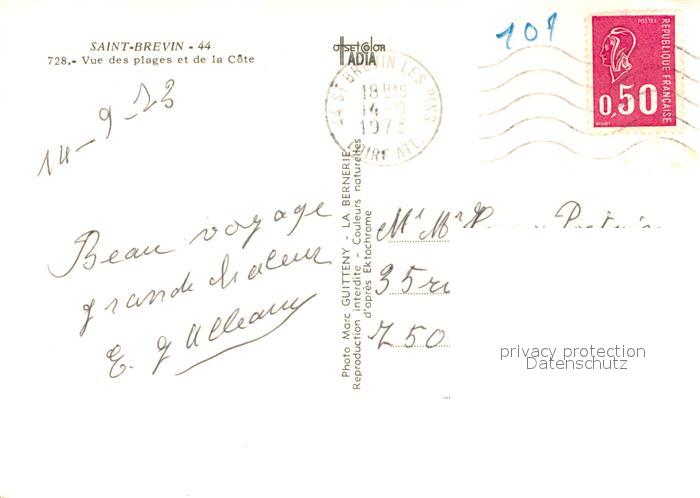 SAINT-BREVIN - 44
728.- Vue des plages et de la Côte
offsetcolor
IADIA
101
POSTES
RÉPUBLIQUE FRANÇAISE
0,50
44 ST BREVIN LES PINS
18H15
14-9
1973
LOIRE ATL.
14-9-73
Beau voyage
grande chaleur
E.
Photo Marc GUITTENY - LA BERNERIE
Reproduction interdite - Couleurs naturelles
d'après Ektachrome
Mr Mr
35 r
750
privacy protection
Datenschutz
...